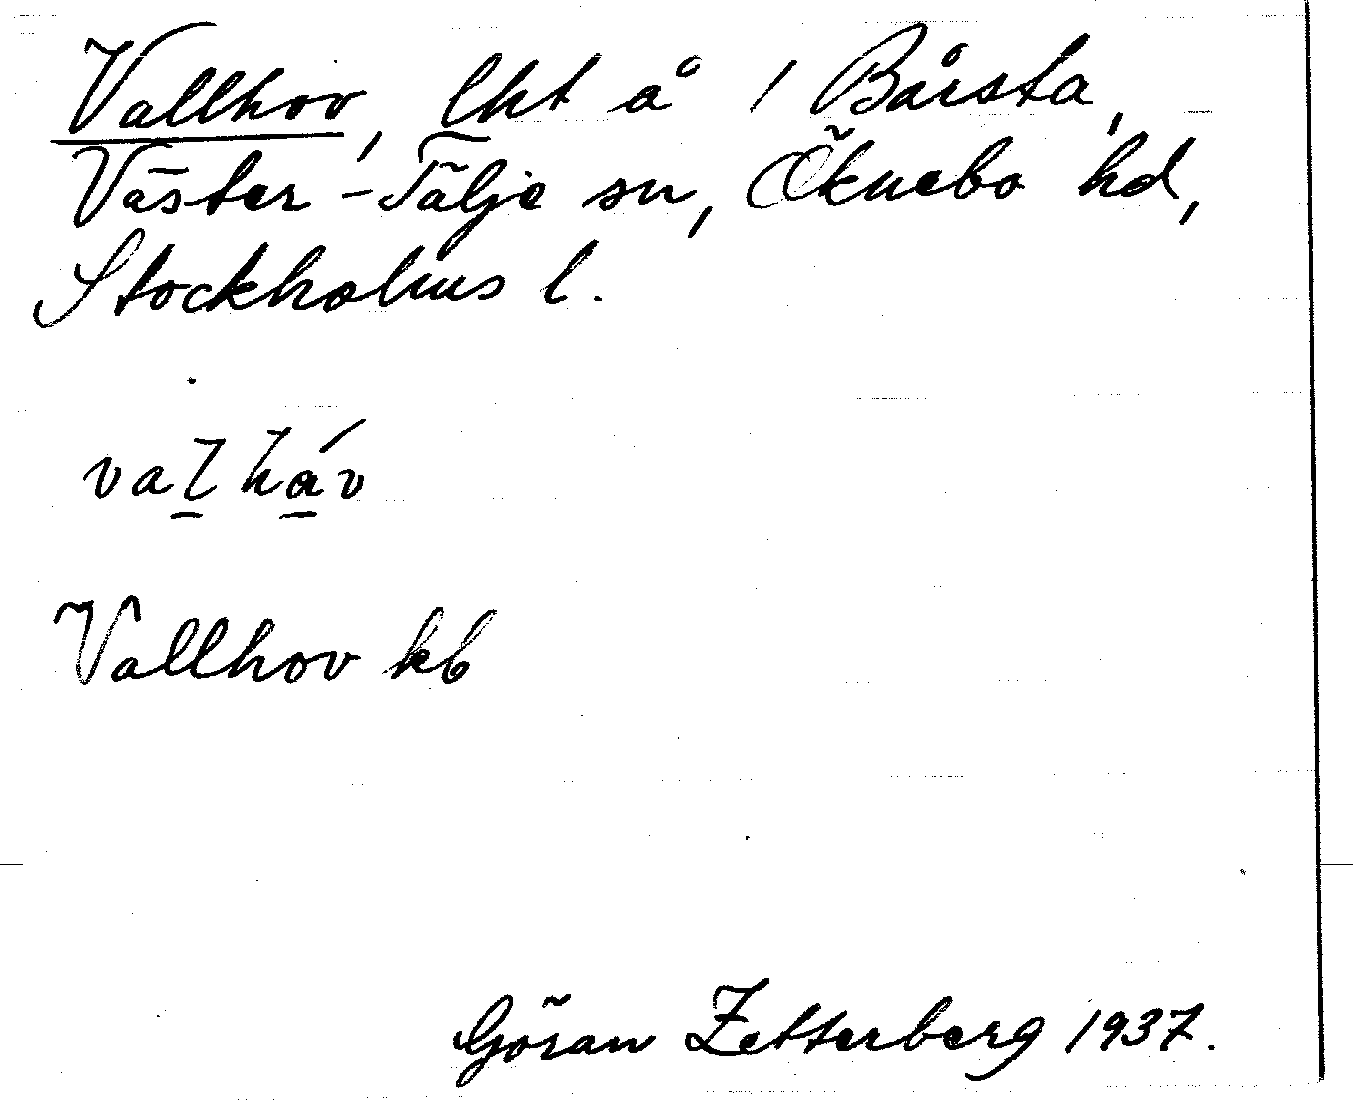 Vallhov, lht å 1 Bårsta,
Väster-Tälje sn, Öknebo hd,
Stockholms l.
valháv
Vallhov kb
Göran Zetterberg 1937.